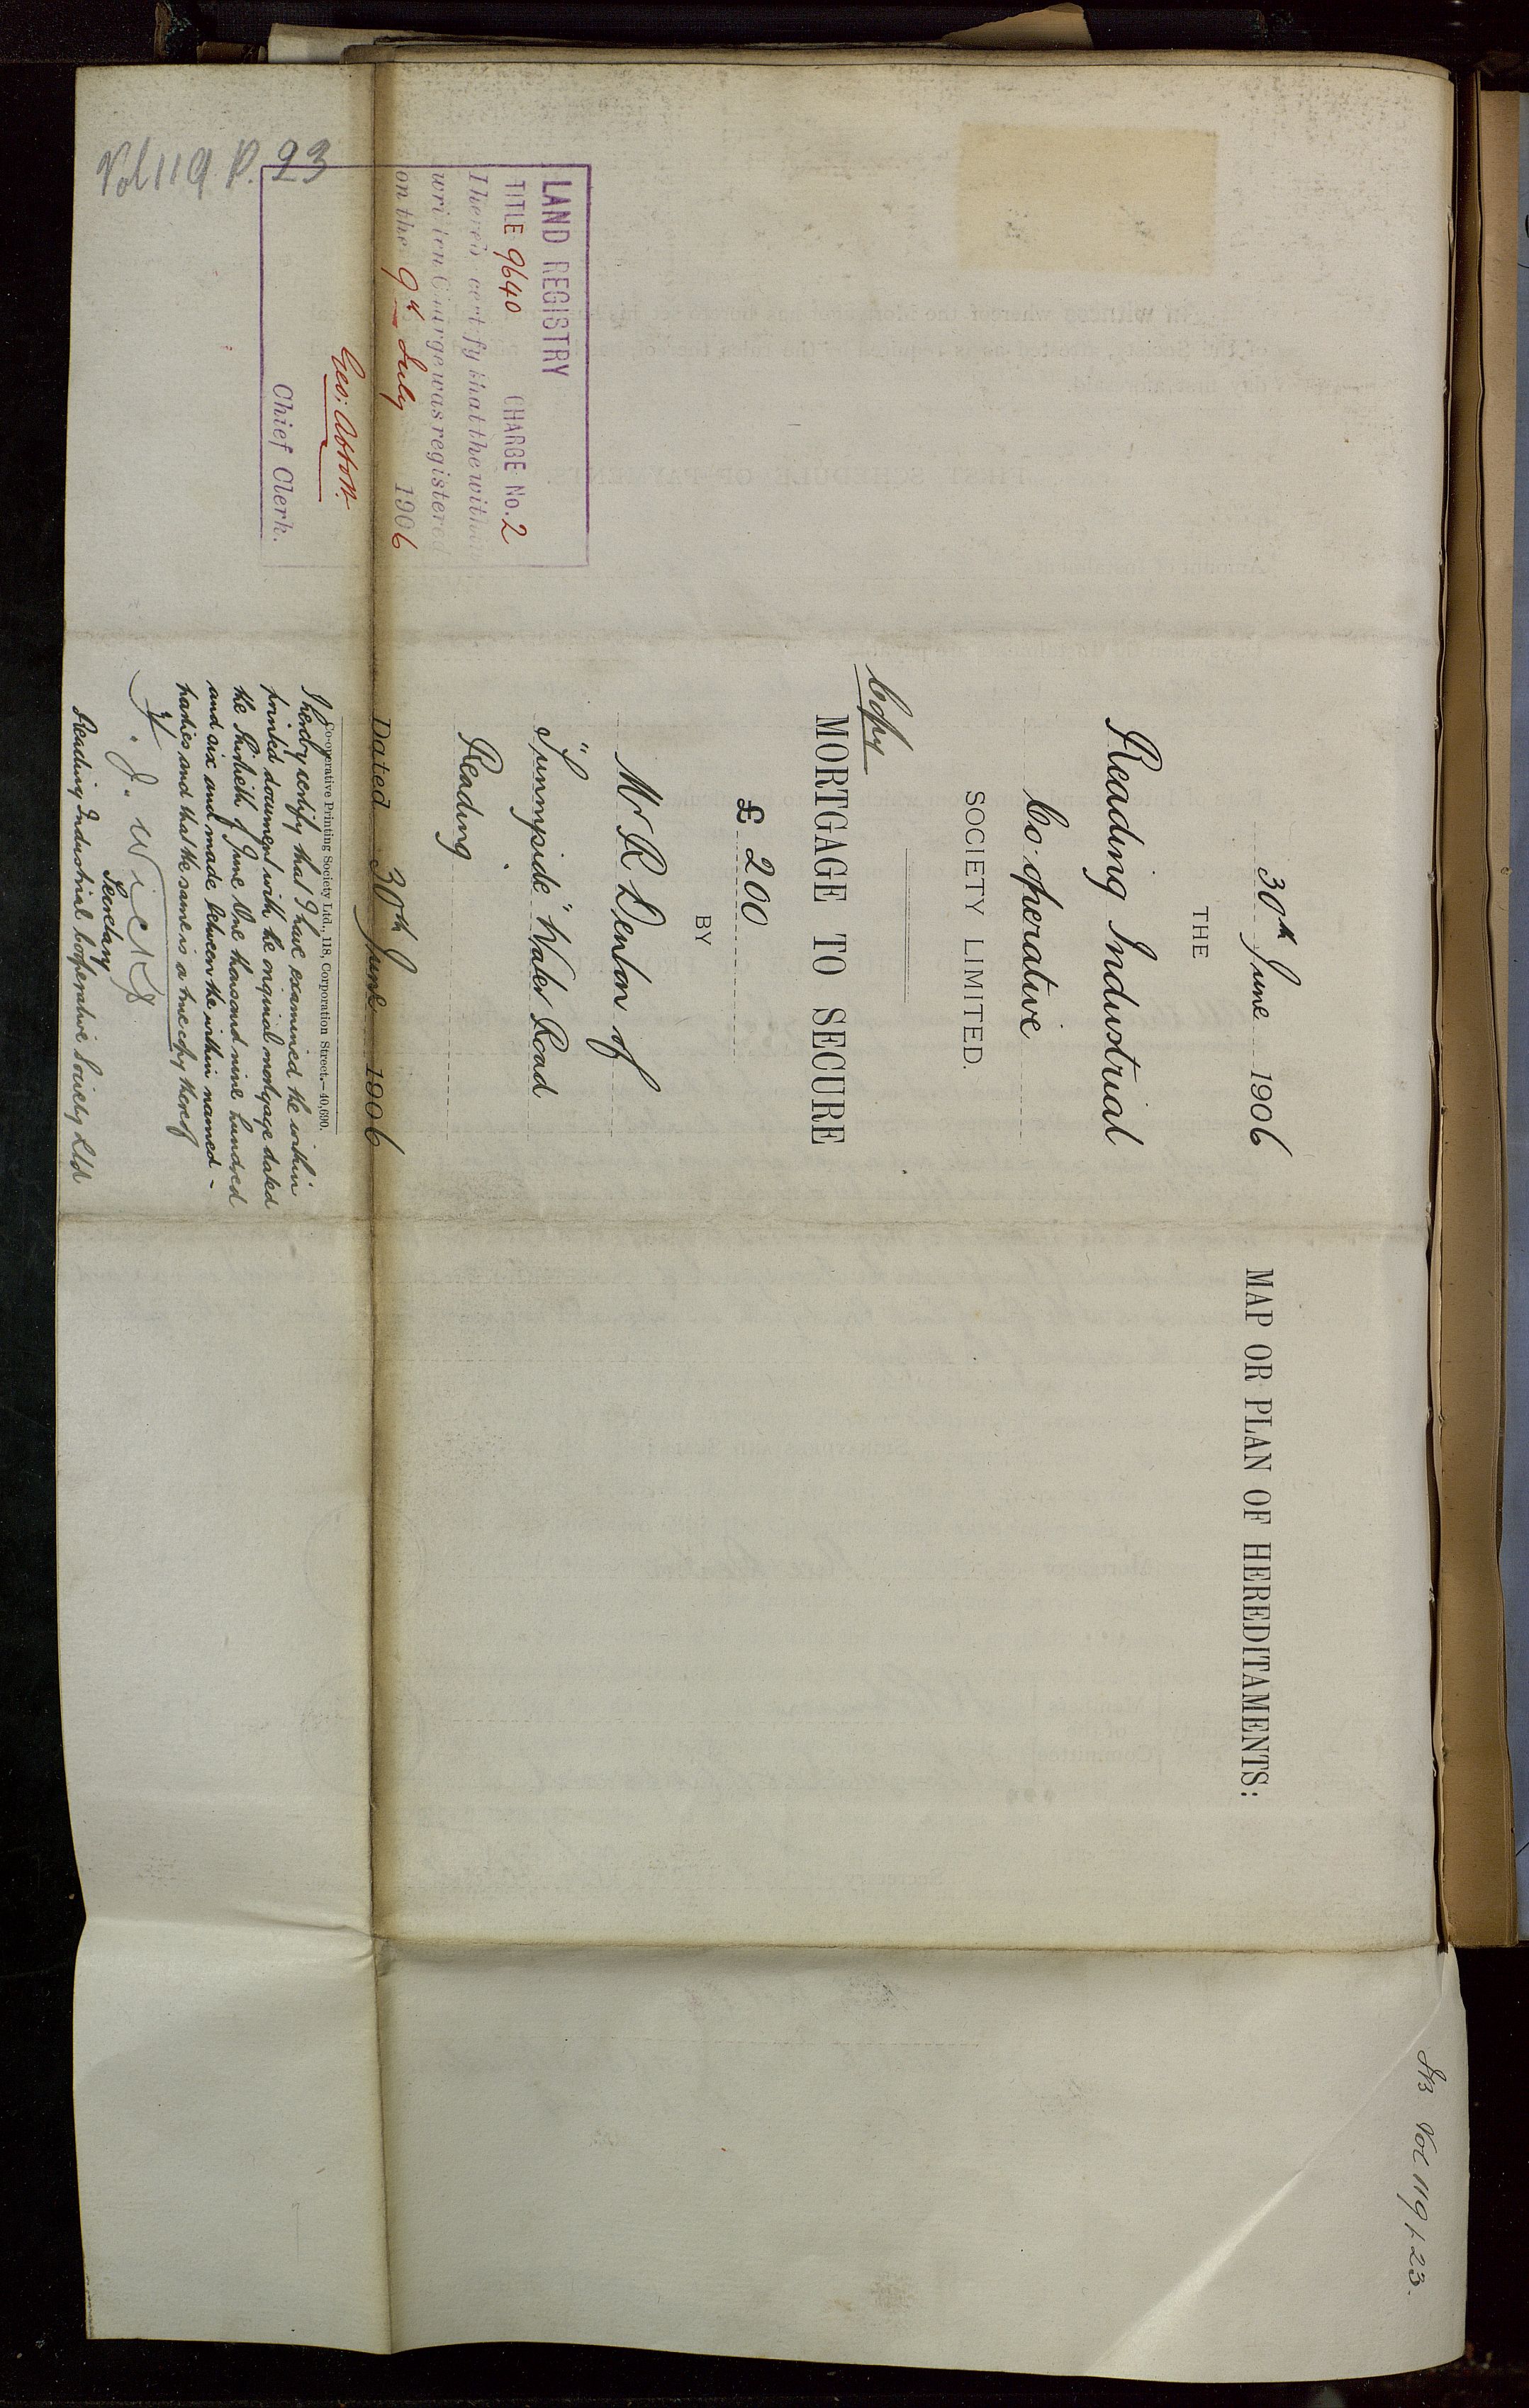 Vol 119 P. 23
LAND REGISTRY
TITLE 9640 CHARGE No. 2
I hereby certify that the within
written Charge was registered
on the 9th July 1906
Geo: Abbott
Chief Clerk.
30th June 1906
THE
Reading Industrial
Co-operative
SOCIETY LIMITED.
Copy
MORTGAGE TO SECURE
£ 200
BY
Mr R Denton of
"Sunnyside" Water Road
Reading
Dated 30th June 1906
Co-operative Printing Society Ltd., 118, Corporation Street.—40,690.
I hereby certify that I have examined the within
printed document with the original mortgage dated
the thirtieth of June One thousand nine hundred
and six and made between the within named -
parties and that the same is a true copy thereof
Secretary
Reading Industrial Cooperative Society Ltd
MAP OR PLAN OF HEREDITAMENTS:
Vol 119 p 23.